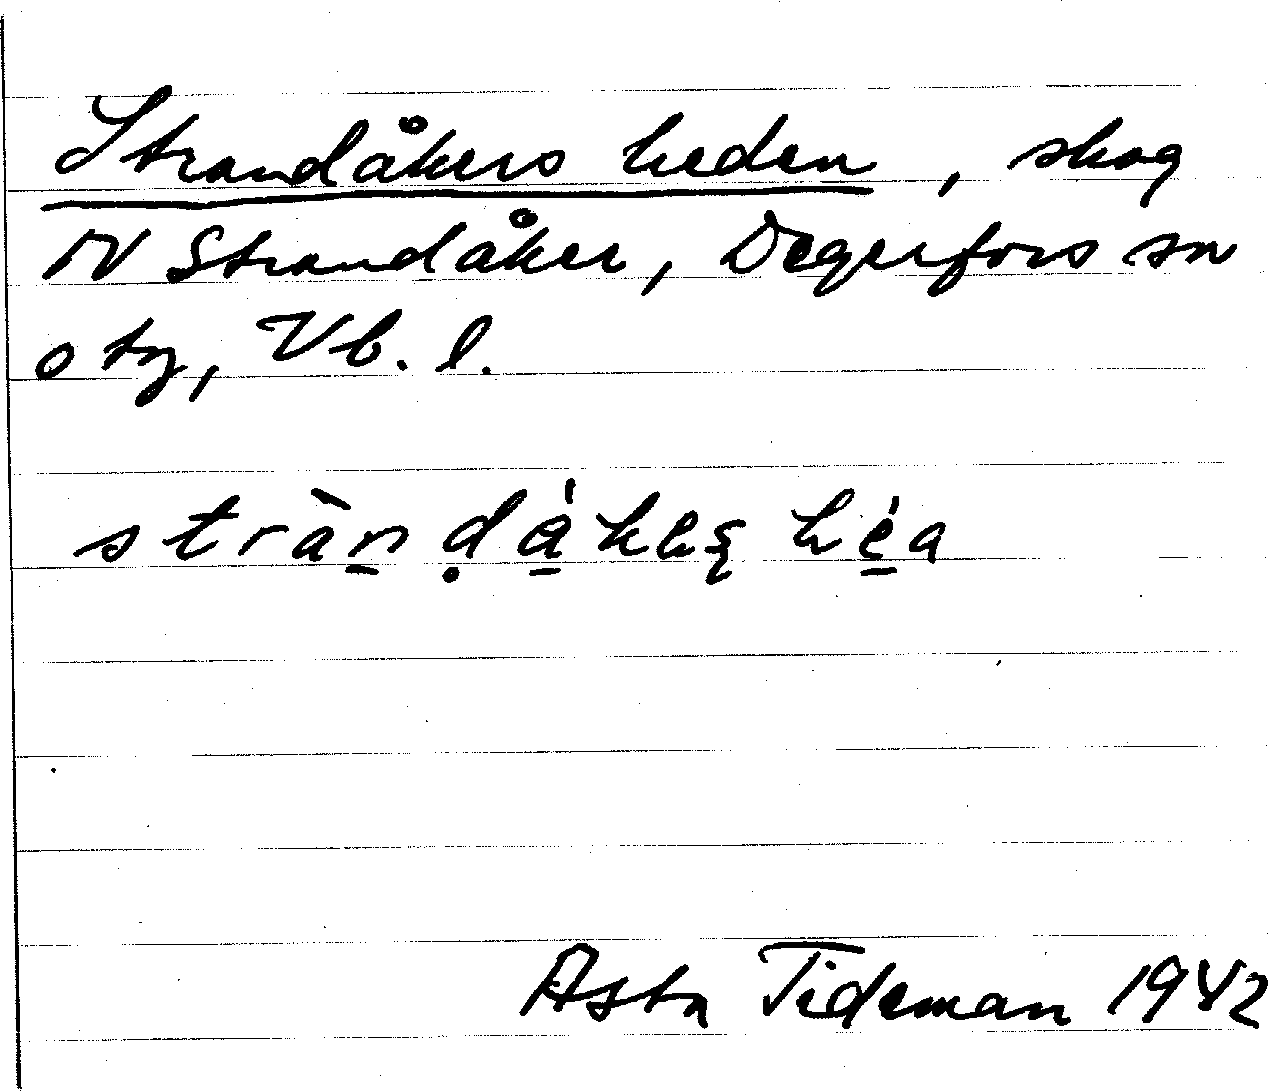 Strandåkers heden, skog
N Strandåker, Degerfors sn
o tg, Vb. l.
stràn̠ḍá̠kes̨ hé̠a
Asta Tideman 1942